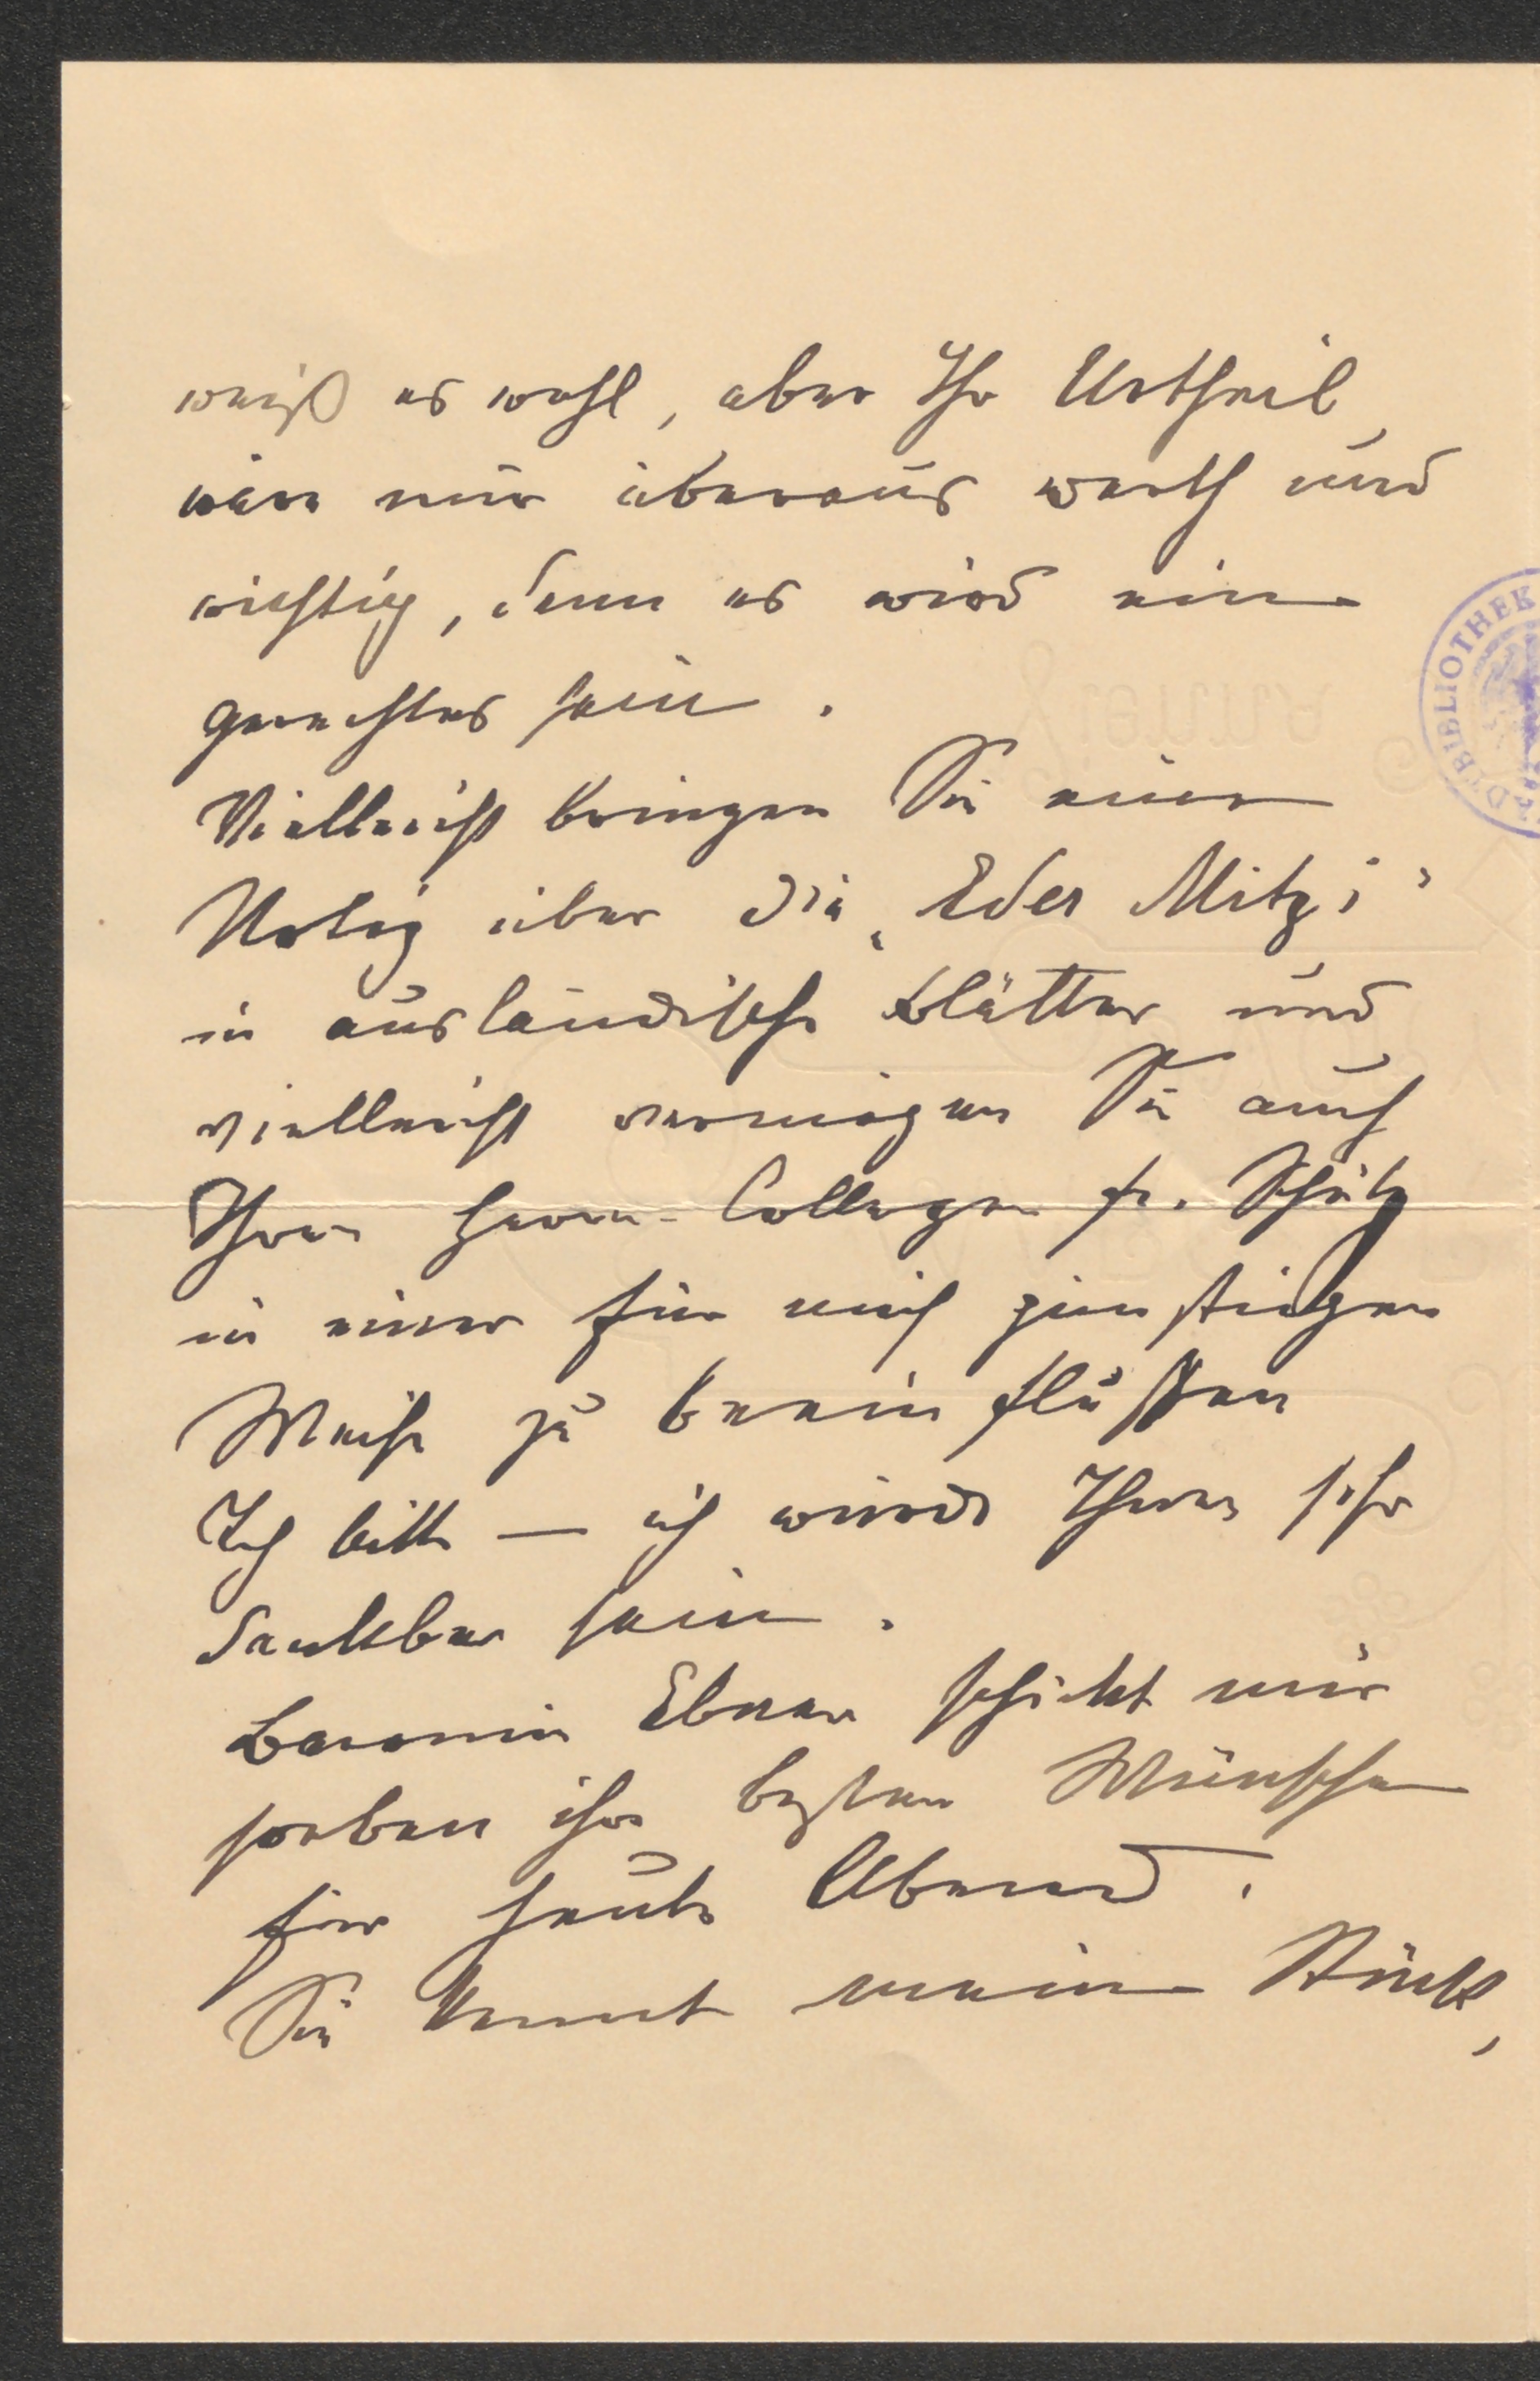 weiß es wohl, aber Ihr Urtheil
wäre mir überaus werth und
wichtig, denn es wird ein
gerechtes sein.
Vielleicht bringen Sie eine
Notiz über die „Eder Mitzi"
in ausländische Blätter und
vielleicht vermögen Sie auch
Ihren Herrn Collegen Fr. Schütz
in einer für mich günstigen
Weise zu beeinflußen
Ich bitte — ich würde Ihnen sehr
dankbar sein.
Baronin Ebner schickt mir
soeben ihre besten Wünsche
für heute Abend.
Sie kennt meine Stücke,
BIBLIOTHEK